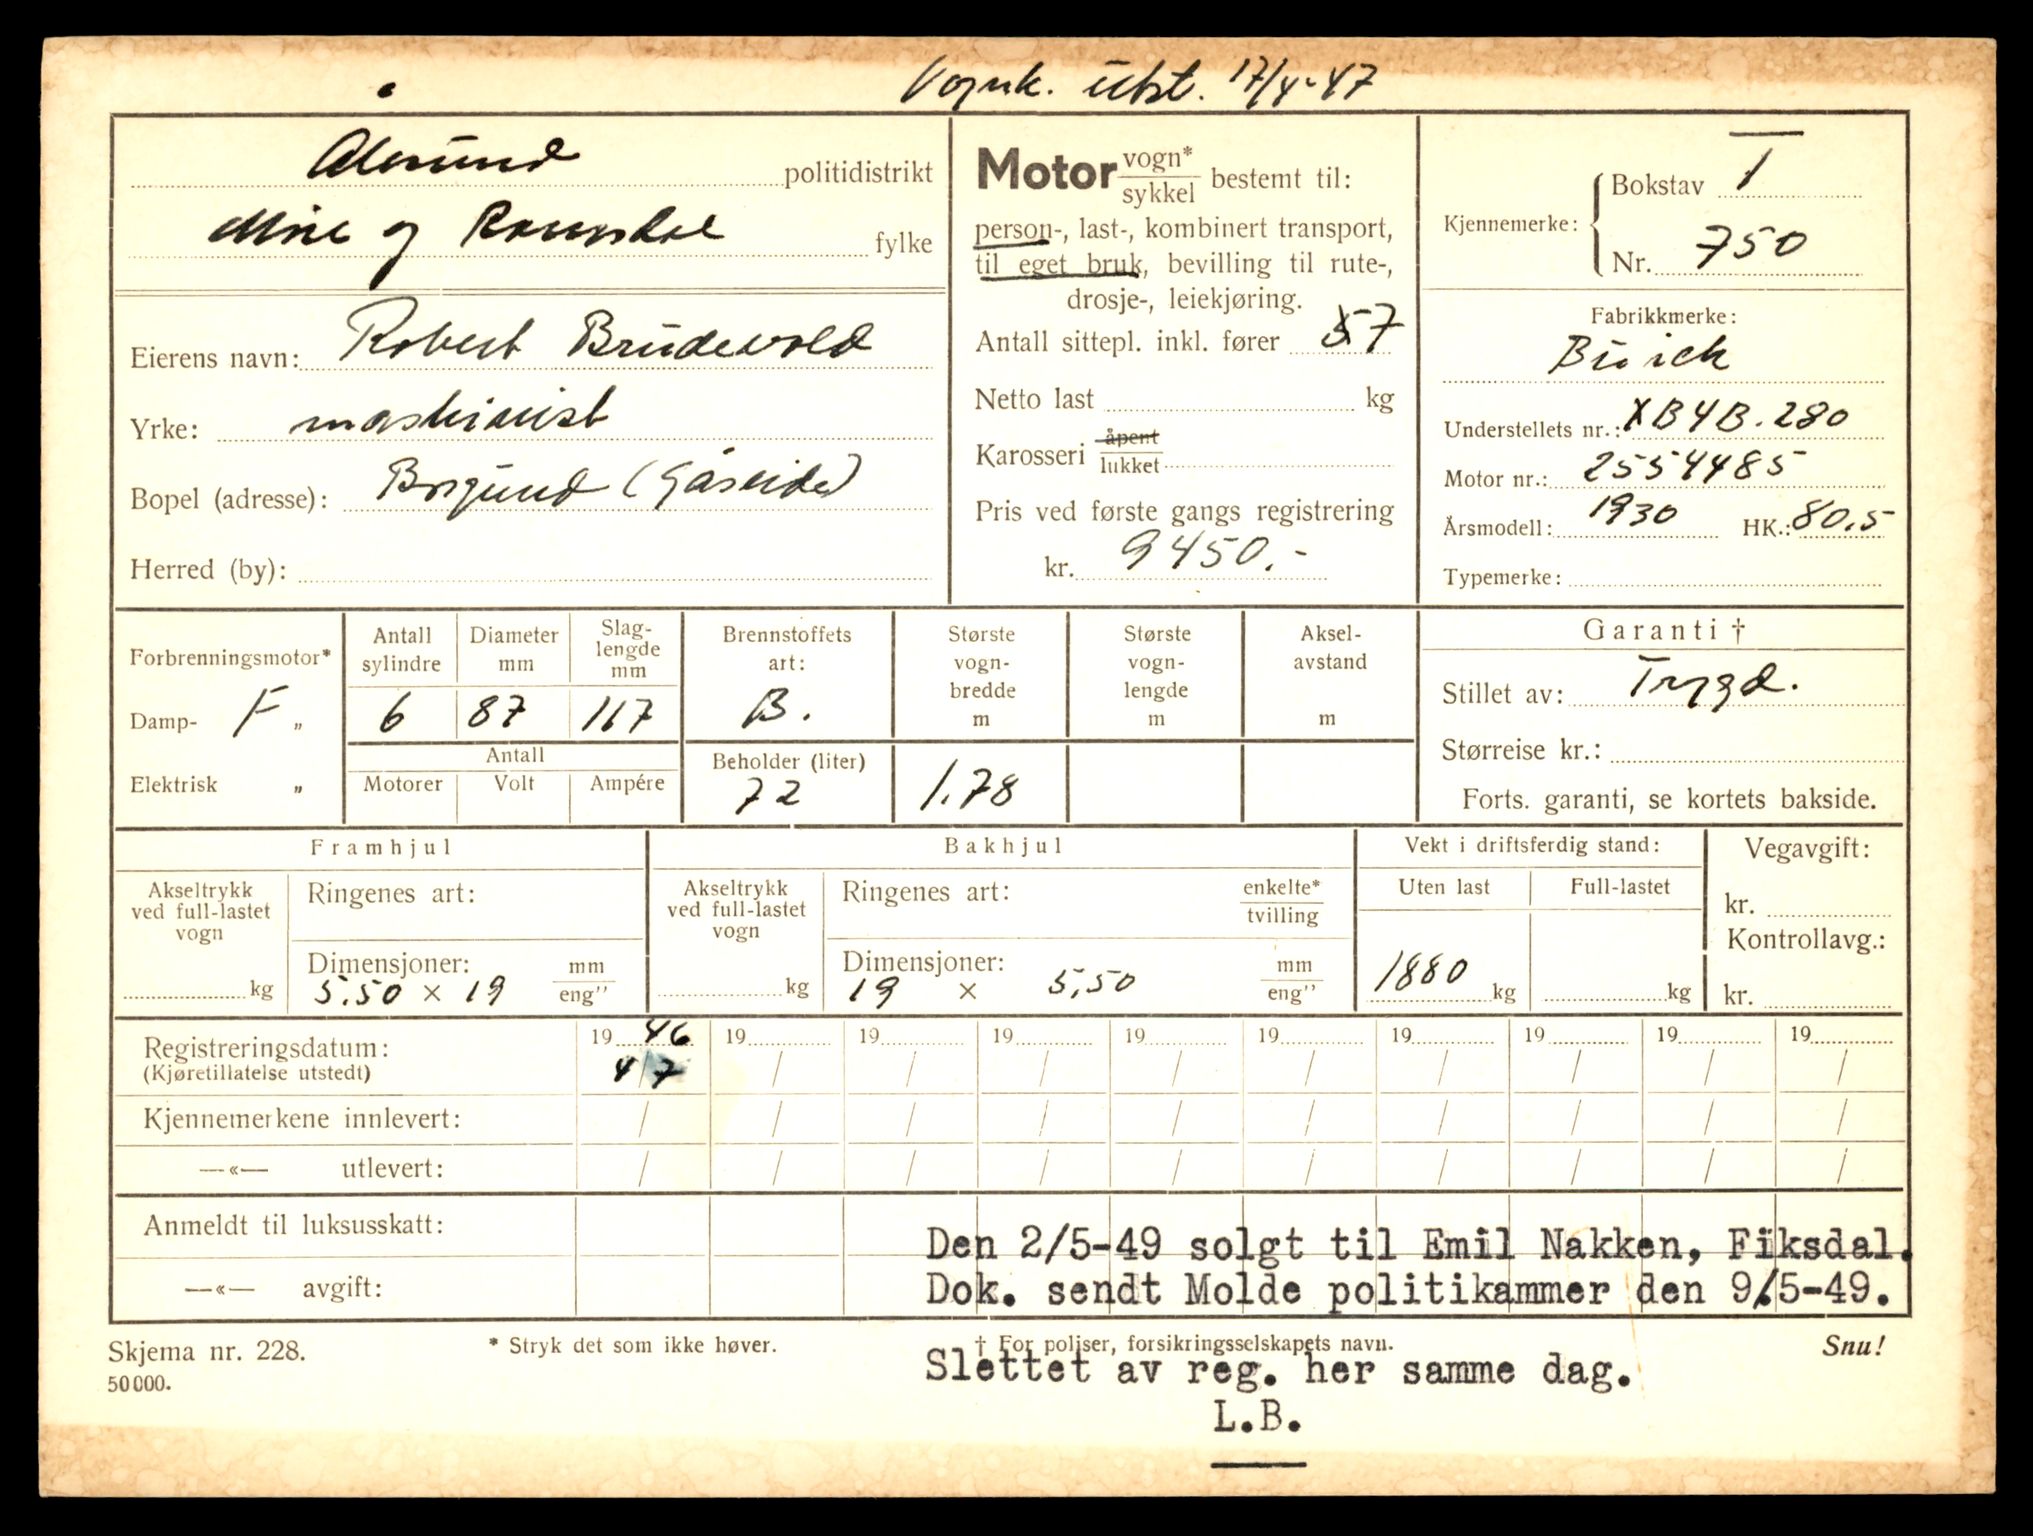 Vognk. utst. 17/4-47
Ålesund politidistrikt
Møre og Romsdal fylke
Eierens navn: Robert Brudevold
Yrke: maskinist
Bopel (adresse): Borgund (Gåseide)
Herred (by):
Motor vogn* / sykkel bestemt til:
person-, last-, kombinert transport,
til eget bruk, bevilling til rute-,
drosje-, leiekjøring.
Antall sittepl. inkl. fører 5 7
Netto last kg
Karosseri åpent / lukket
Pris ved første gangs registrering
kr. 9450.-
Kjennemerke: Bokstav T
Nr. 750
Fabrikkmerke:
Buick
Understellets nr.: XB4B.280
Motor nr.: 2554485
Årsmodell: 1930 HK.: 80.5
Typemerke:
Forbrenningsmotor*
Damp- F „
Elektrisk „
Antall sylindre Diameter mm Slag-lengde mm
6 87 117
Antall
Motorer Volt Ampére
Brennstoffets art:
B.
Beholder (liter)
72
Største vogn-bredde m
1.78
Største vogn-lengde m
Aksel-avstand m
Garanti †
Stillet av: Trygd.
Størreise kr.:
Forts. garanti, se kortets bakside.
Framhjul
Akseltrykk ved full-lastet vogn
kg
Ringenes art:
Dimensjoner: mm / eng”
5.50 × 19
Bakhjul
Akseltrykk ved full-lastet vogn
kg
Ringenes art: enkelte* / tvilling
Dimensjoner: mm / eng”
19 × 5,50
Vekt i driftsferdig stand:
Uten last Full-lastet
1880 kg kg
Vegavgift:
kr.
Kontrollavg.:
kr.
Registreringsdatum: 19 46 19 19 19 19 19 19 19 19 19
(Kjøretillatelse utstedt) 4/7 / / / / / / / / /
Kjennemerkene innlevert: / / / / / / / / / /
—«— utlevert: / / / / / / / / / /
Anmeldt til luksusskatt:
—«— avgift:
Den 2/5-49 solgt til Emil Nakken, Fiksdal.
Dok. sendt Molde politikammer den 9/5-49.
Skjema nr. 228.
50000.
* Stryk det som ikke høver.
† For poliser, forsikringsselskapets navn.
Snu!
Slettet av reg. her samme dag.
L.B.